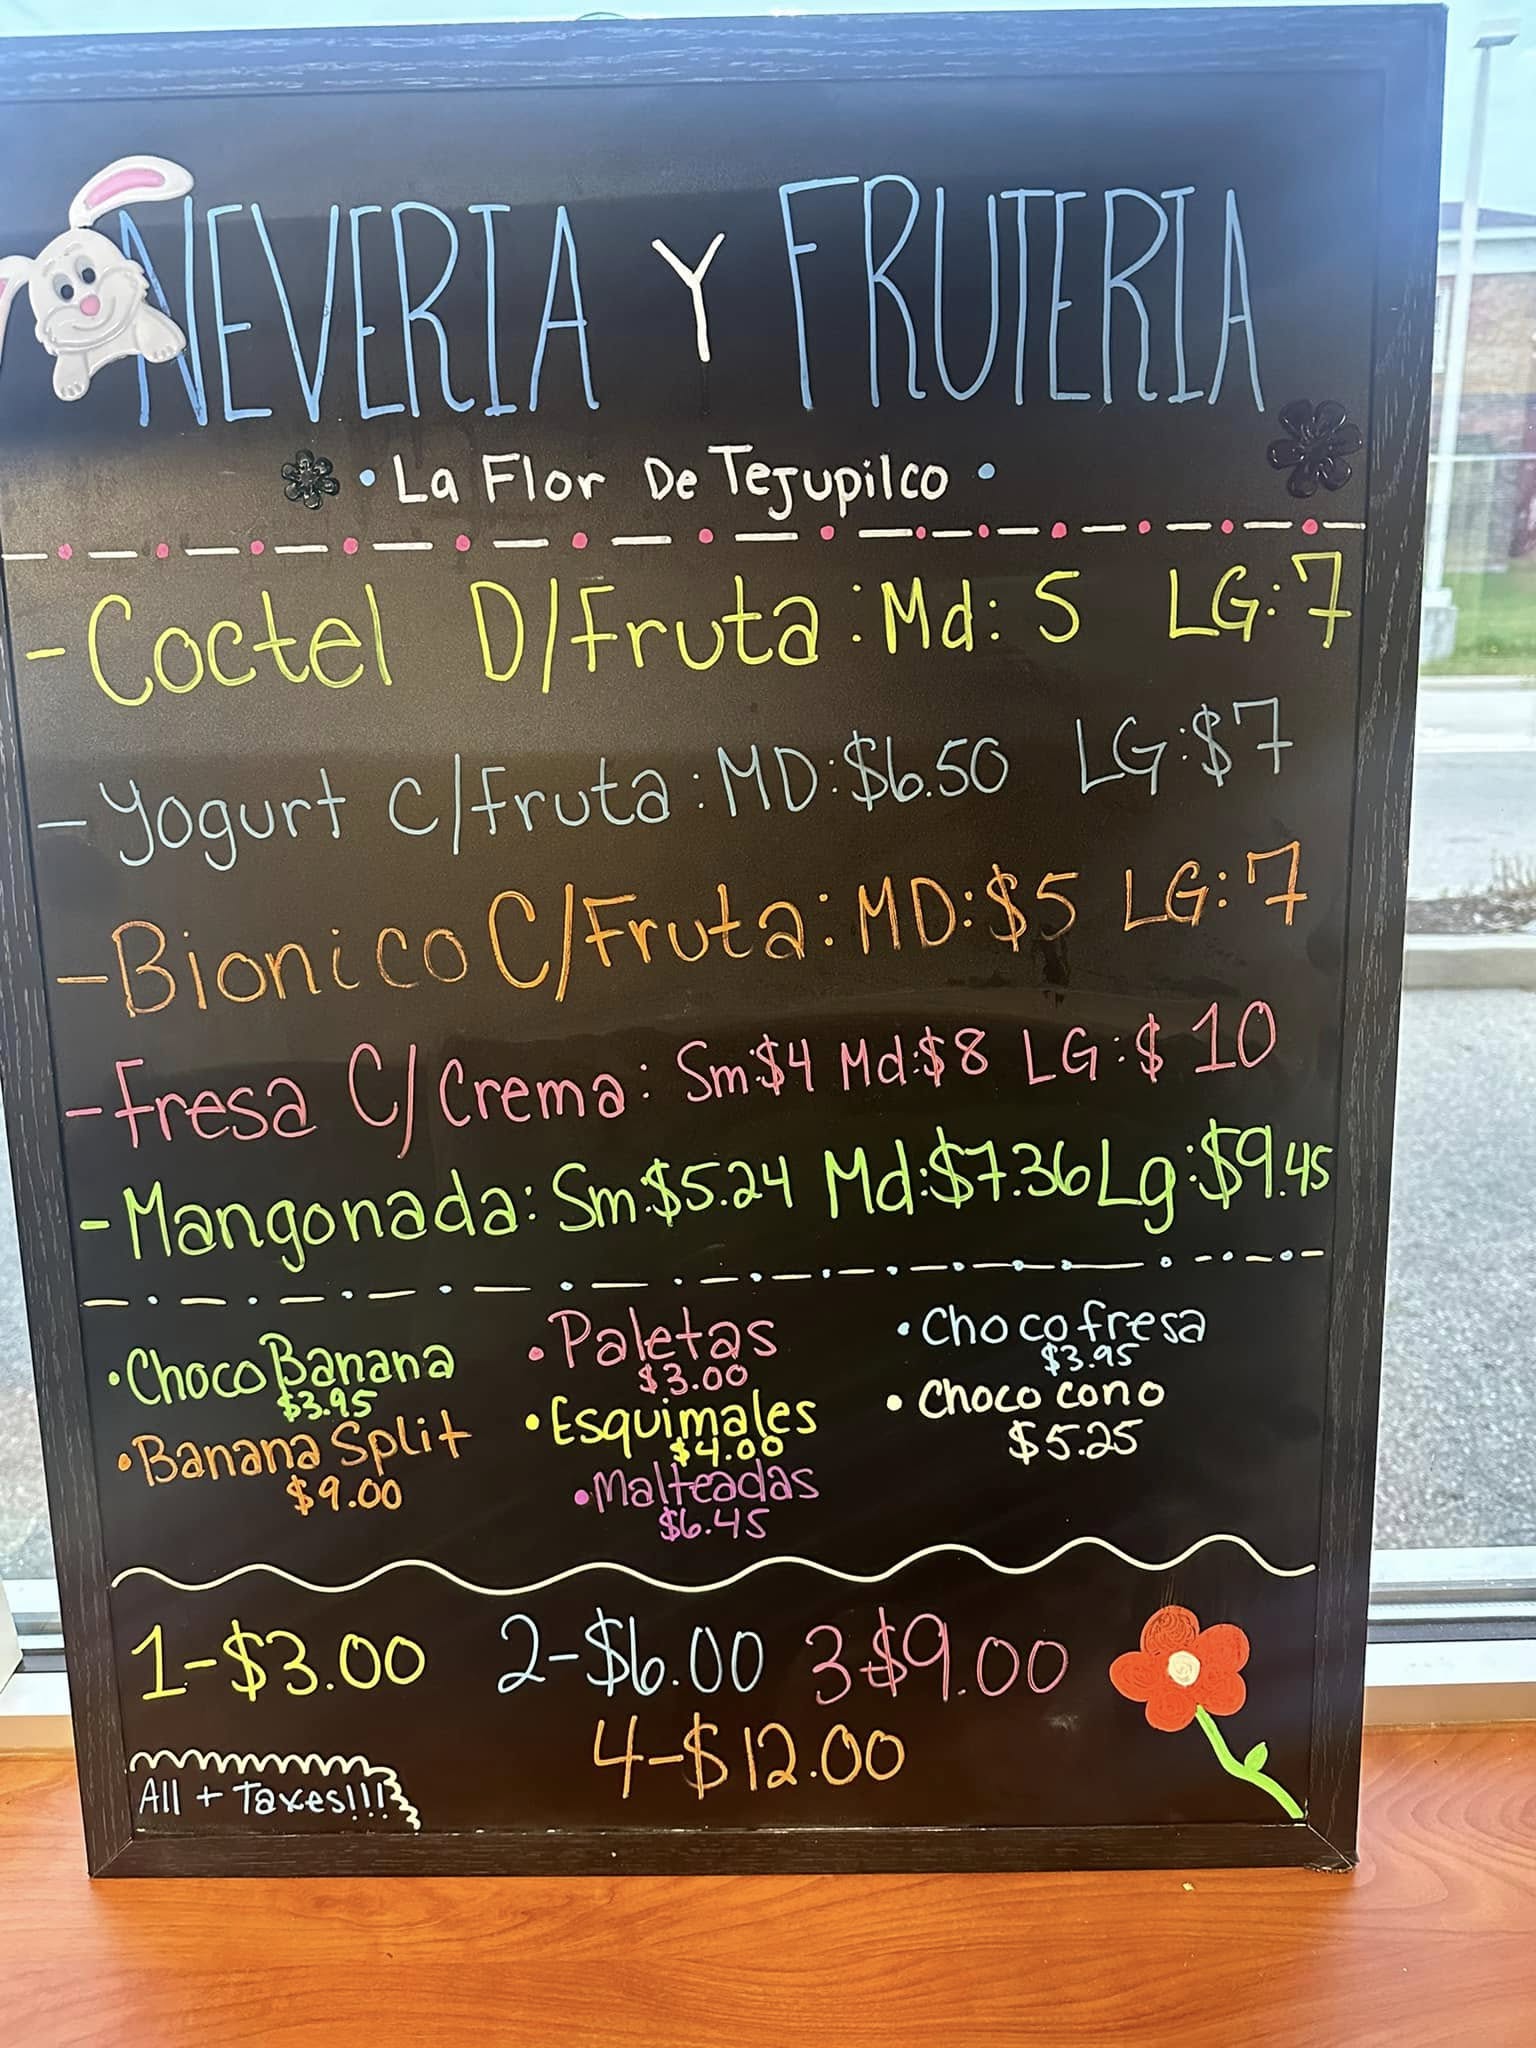 NEVERIA Y FRUTERIA
• La Flor De Tejupilco •
- Coctel D/Fruta: Md: 5 LG: 7
- Yogurt C/fruta: MD: $6.50 LG: $7
- Bionico C/Fruta: MD: $5 LG: 7
- Fresa C/Crema: Sm:$4 Md:$8 LG: $10
- Mangonada: Sm:$5.24 Md:$7.36 Lg:$9.45
• Choco Banana
$3.95
• Banana Split
$9.00
• Paletas
$3.00
• Esquimales
$4.00
• Malteadas
$6.45
• Choco fresa
$3.95
• Choco cono
$5.25
1-$3.00 2-$6.00 3-$9.00
4-$12.00
All + Taxes!!!